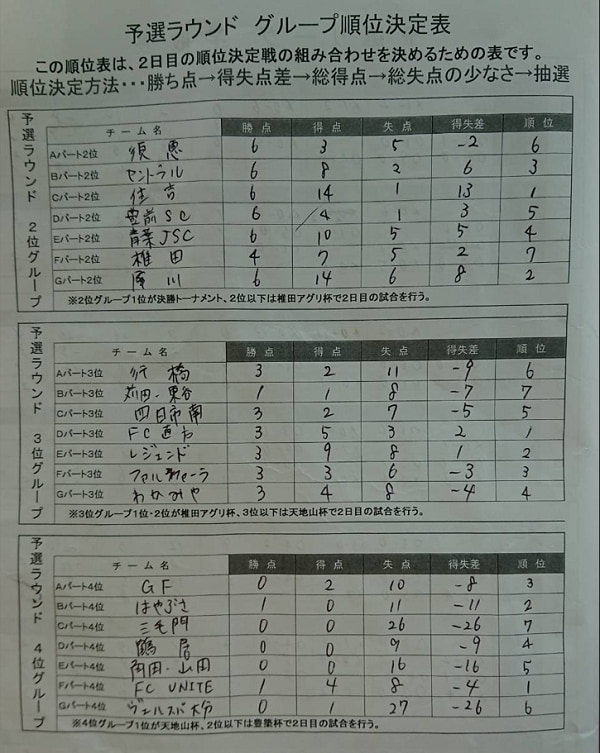 予選ラウンド グループ順位決定表
この順位表は、2日目の順位決定戦の組み合わせを決めるための表です。
順位決定方法･･･勝ち点→得失点差→総得点→総失点の少なさ→抽選
予選ラウンド 2位グループ
チーム名 勝点 得点 失点 得失差 順位
Aパート2位 須恵 6 3 5 -2 6
Bパート2位 セントラル 6 8 2 6 3
Cパート2位 住吉 6 14 1 13 1
Dパート2位 豊前SC 6 4 1 3 5
Eパート2位 青葉JSC 6 10 5 5 4
Fパート2位 椎田 4 7 5 2 7
Gパート2位 川 6 14 6 8 2
※2位グループ1位が決勝トーナメント、2位以下は椎田アグリ杯で2日目の試合を行う。
予選ラウンド 3位グループ
チーム名 勝点 得点 失点 得失差 順位
Aパート3位 行橋 3 2 11 -9 6
Bパート3位 苅田・東谷 1 1 8 -7 7
Cパート3位 四日市南 3 2 7 -5 5
Dパート3位 FC直方 3 5 3 2 1
Eパート3位 レジェンド 3 9 8 1 2
Fパート3位 3 3 6 -3 3
Gパート3位 わかみや 3 4 8 -4 4
※3位グループ1位･2位が椎田アグリ杯、3位以下は天地山杯で2日目の試合を行う。
予選ラウンド 4位グループ
チーム名 勝点 得点 失点 得失差 順位
Aパート4位 GF 0 2 10 -8 3
Bパート4位 はやぶさ 1 0 11 -11 2
Cパート4位 三毛門 0 0 26 -26 7
Dパート4位 鶴居 0 0 9 -9 4
Eパート4位 角田・山田 0 0 16 -16 5
Fパート4位 FC UNITE 1 4 8 -4 1
Gパート4位 ヴェルスパ大分 0 1 27 -26 6
※4位グループ1位が天地山杯、2位以下は豊築杯で2日目の試合を行う。